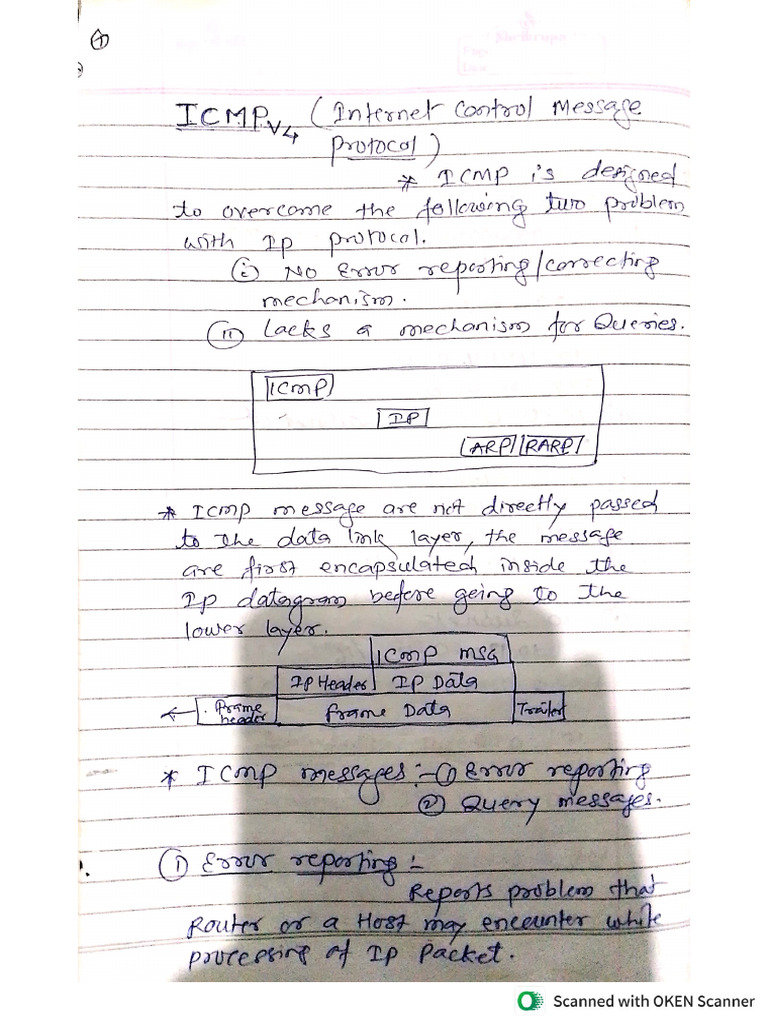 ICMPv4 (Internet Control Message
Protocol)
* ICMP is designed
to overcome the following two problem
with Ip protocol.
(i) No Error reporting/correcting
mechanism.
(ii) Lacks a mechanism for Queries.
ICMP
IP
ARP RARP
* ICMP message are not directly passed
to the data link layer, the message
are first encapsulated inside the
Ip datagram before going to the
lower layer.
ICMP MSG
IP Header IP Data
Frame header Frame Data Trailer
* ICMP messages :- (1) Error reporting
(2) Query messages.
(1) Error reporting :-
Reports problem that
Router or a Host may encounter while
processing of IP Packet.
Scanned with OKEN Scanner